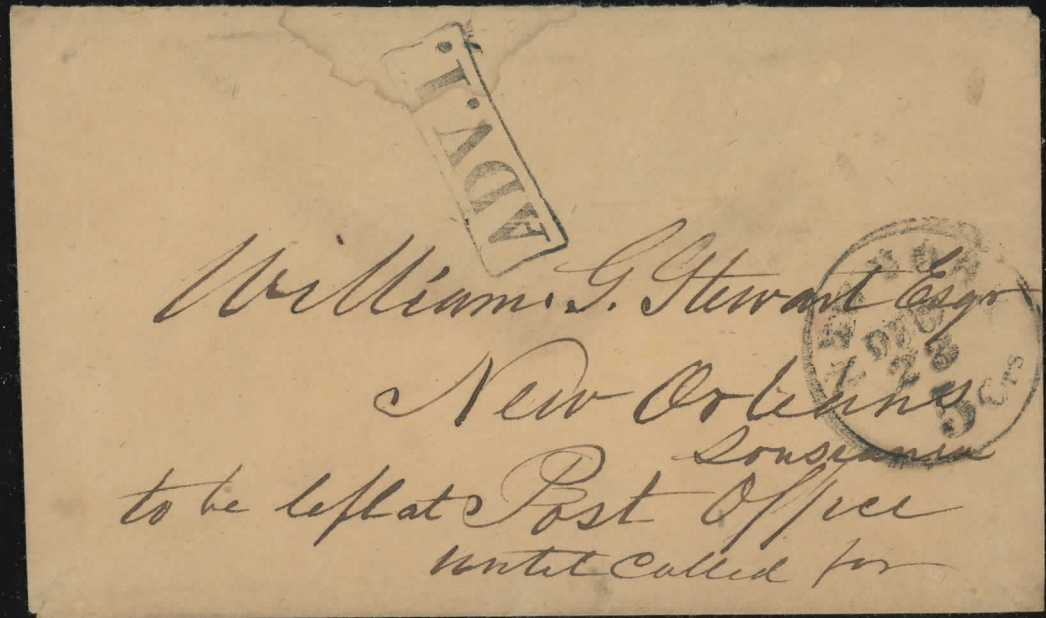 ADV. 1.
William. G. Stewart Esqr
New Orleans
Lousiania
to be left at Post Office
until called for
NEW YORK
DEC
23
5 Cts